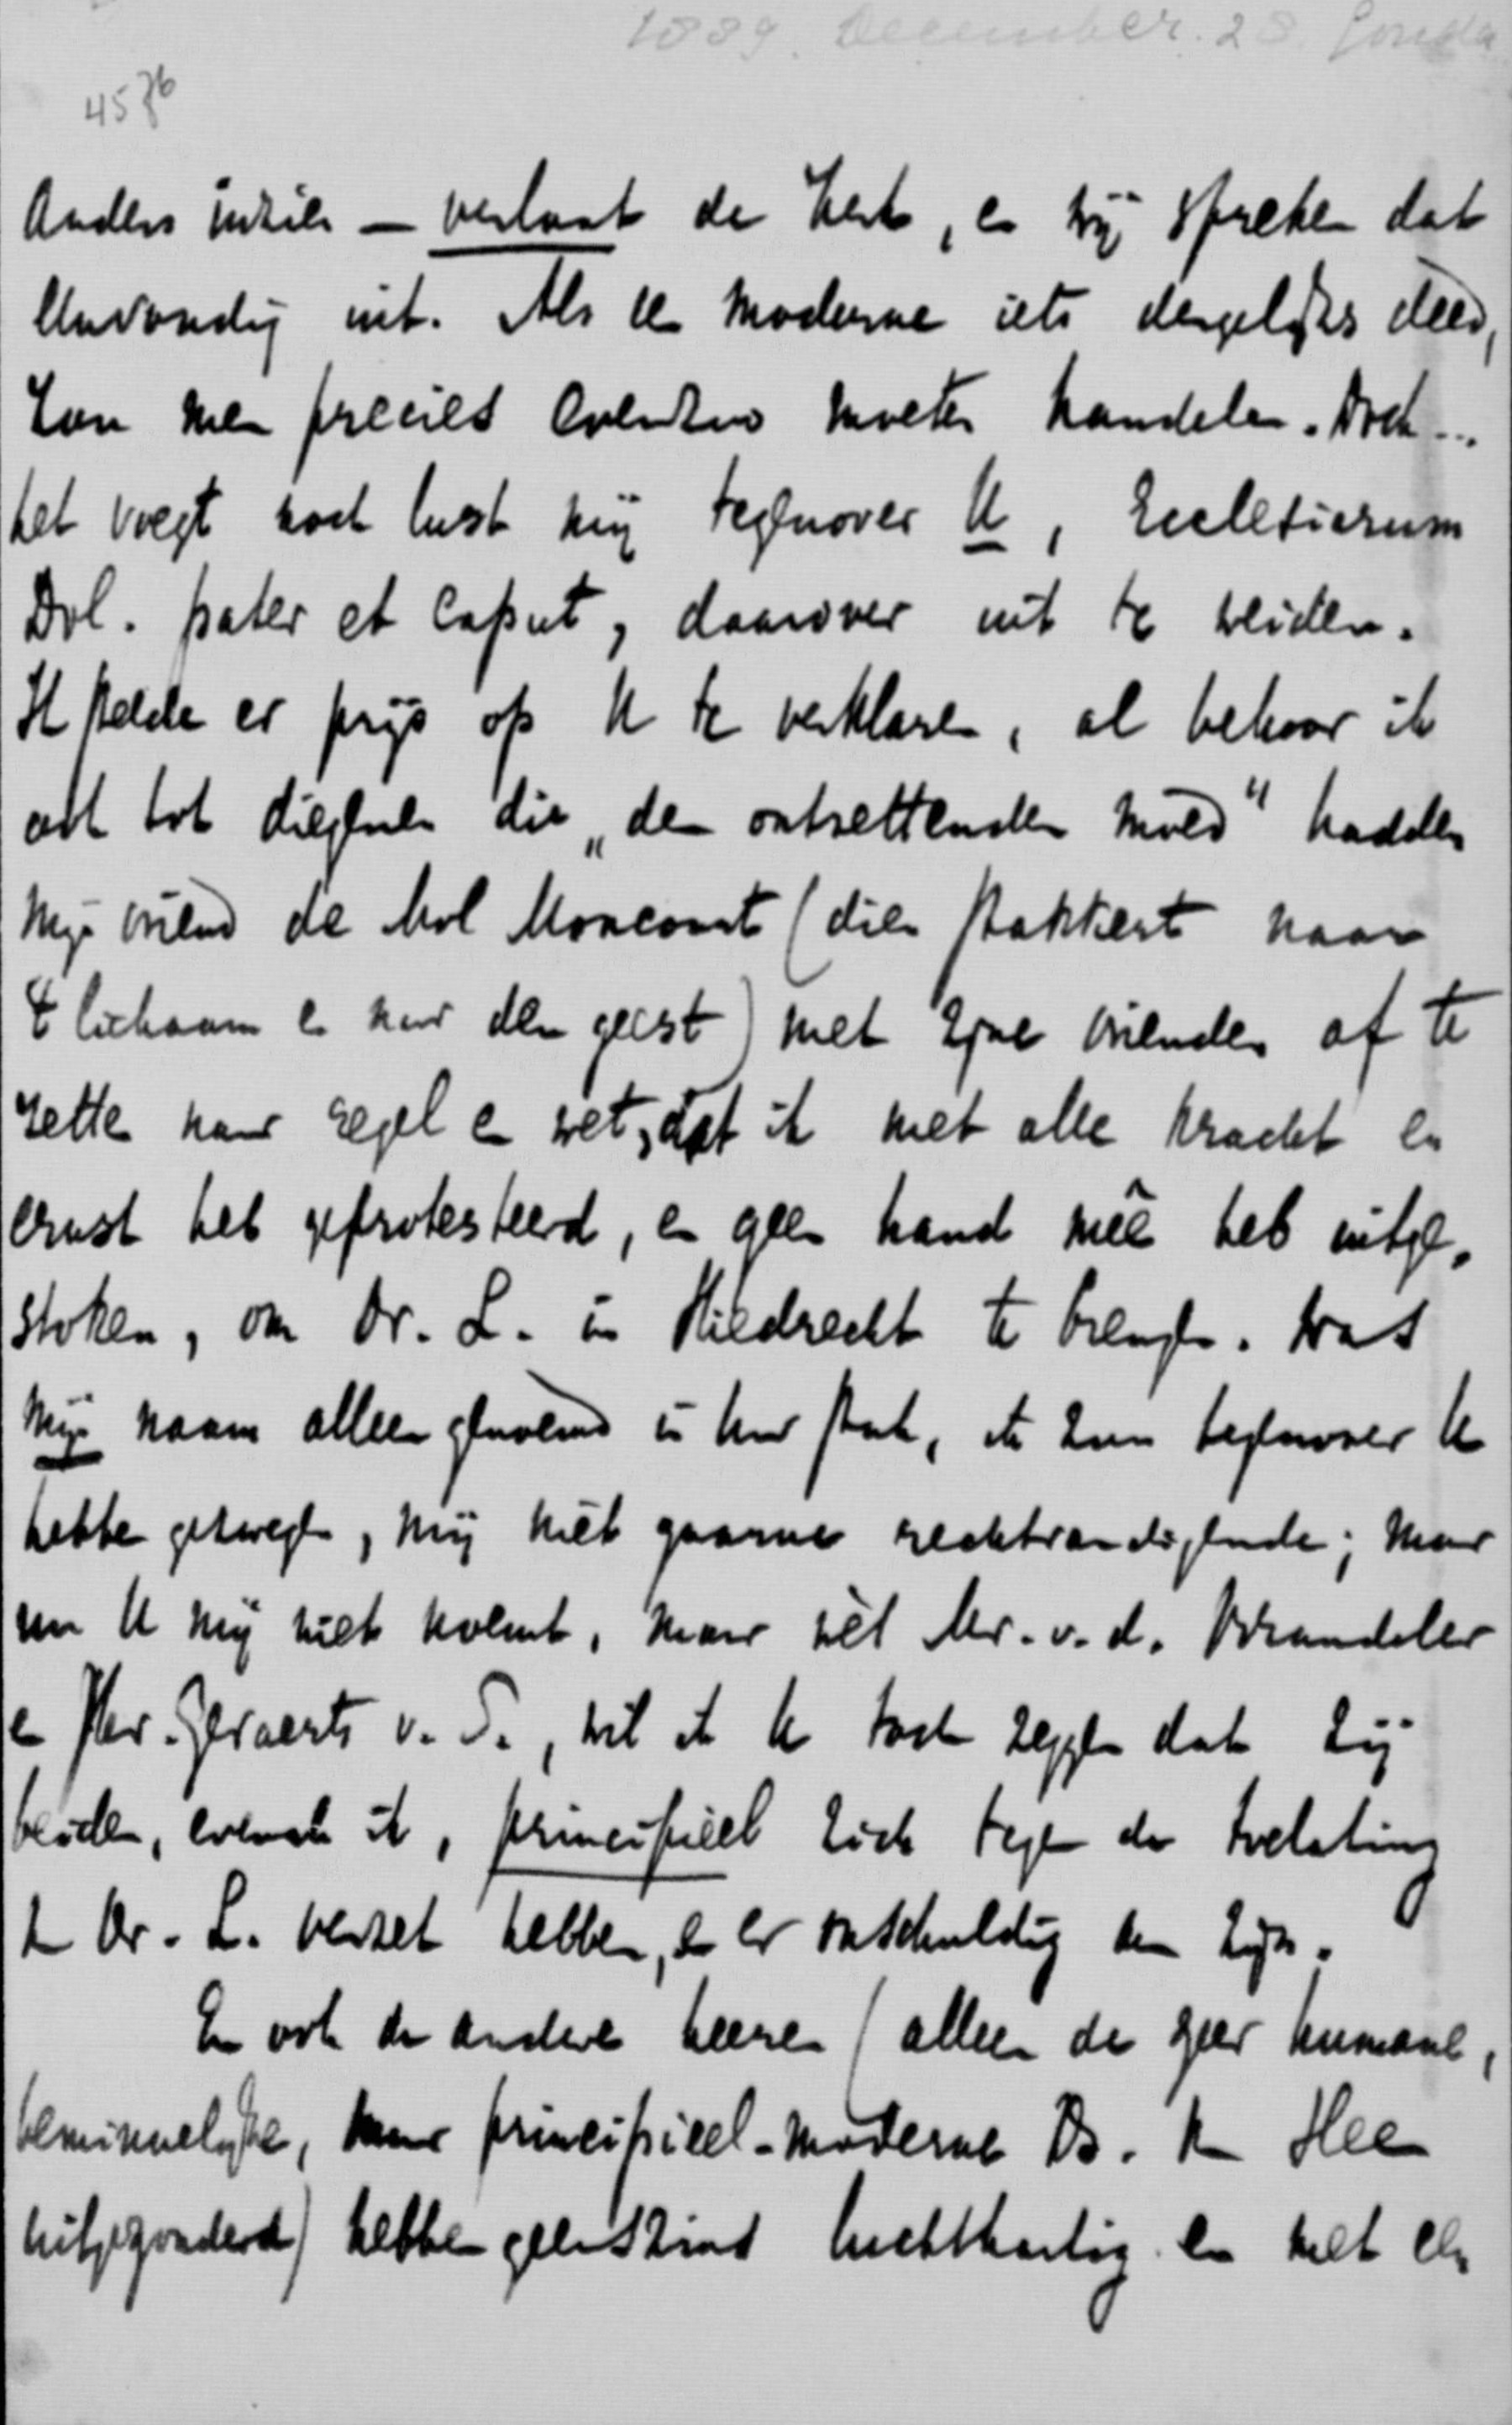 1889. December. 28. Gouda
4576
Anders intile — verlaat de Kerk, en wij spreken dat
onvoorwaardelijk uit. Als de moderne iets dergelijks deed,
zou men precies evenzoo moeten handelen. Doch ...
het voegt noch lust mij tegenover U, Ecclesiarum
Dol. pater et caput, daarover uit te weiden.
Ik stelde er prijs op U te verklaren, al behoor ik
ook tot diegenen die „den ontzettenden moed" hadden
mijn vriend de Mol Moncourt (dien stakkert naar
't lichaam en naar den geest) met zijne vrienden af te
zetten naar regel en wet, dat ik met alle kracht en
ernst heb geprotesteerd, en geen hand mêe heb uitge-
stoken, om Dr. L. in Sliedrecht te brengen. Was
mijn naam alleen genoemd in uw stuk, ik zou tegenover U
hebben gezwegen, mij niet gaarne rechtvaardigende; maar
nu U mij niet noemt, maar wèl Mr. v. d. Brandeler
en Jhr. Gevaerts v. S., wil ik U toch zeggen dat zij
beiden, evenals ik, principieel zich tegen de toelating
van Dr. L. verzet hebben, en er onschuldig aan zijn.
En ook de andere heeren (alleen de zeer humane,
beminnelijke, maar principieel-moderne Ds. v. Hee
uitgezonderd) hebben geenszins luchthartig en met een